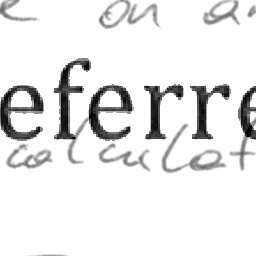 e on an
eferre
calculat